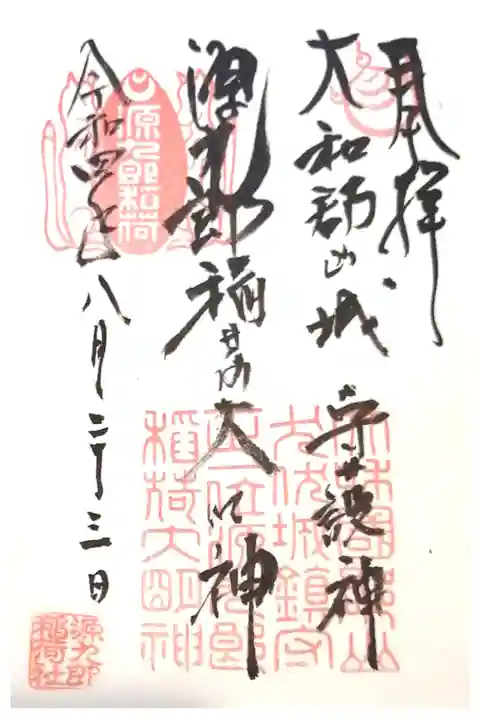 奉拝
大和郡山城 守護神
源九郎稲荷大明神
令和四年八月二十三日
源九郎稲荷
大和國郡山
九代城鎮守
正一位源九郎
稲荷大明神
源九郎
稲荷社